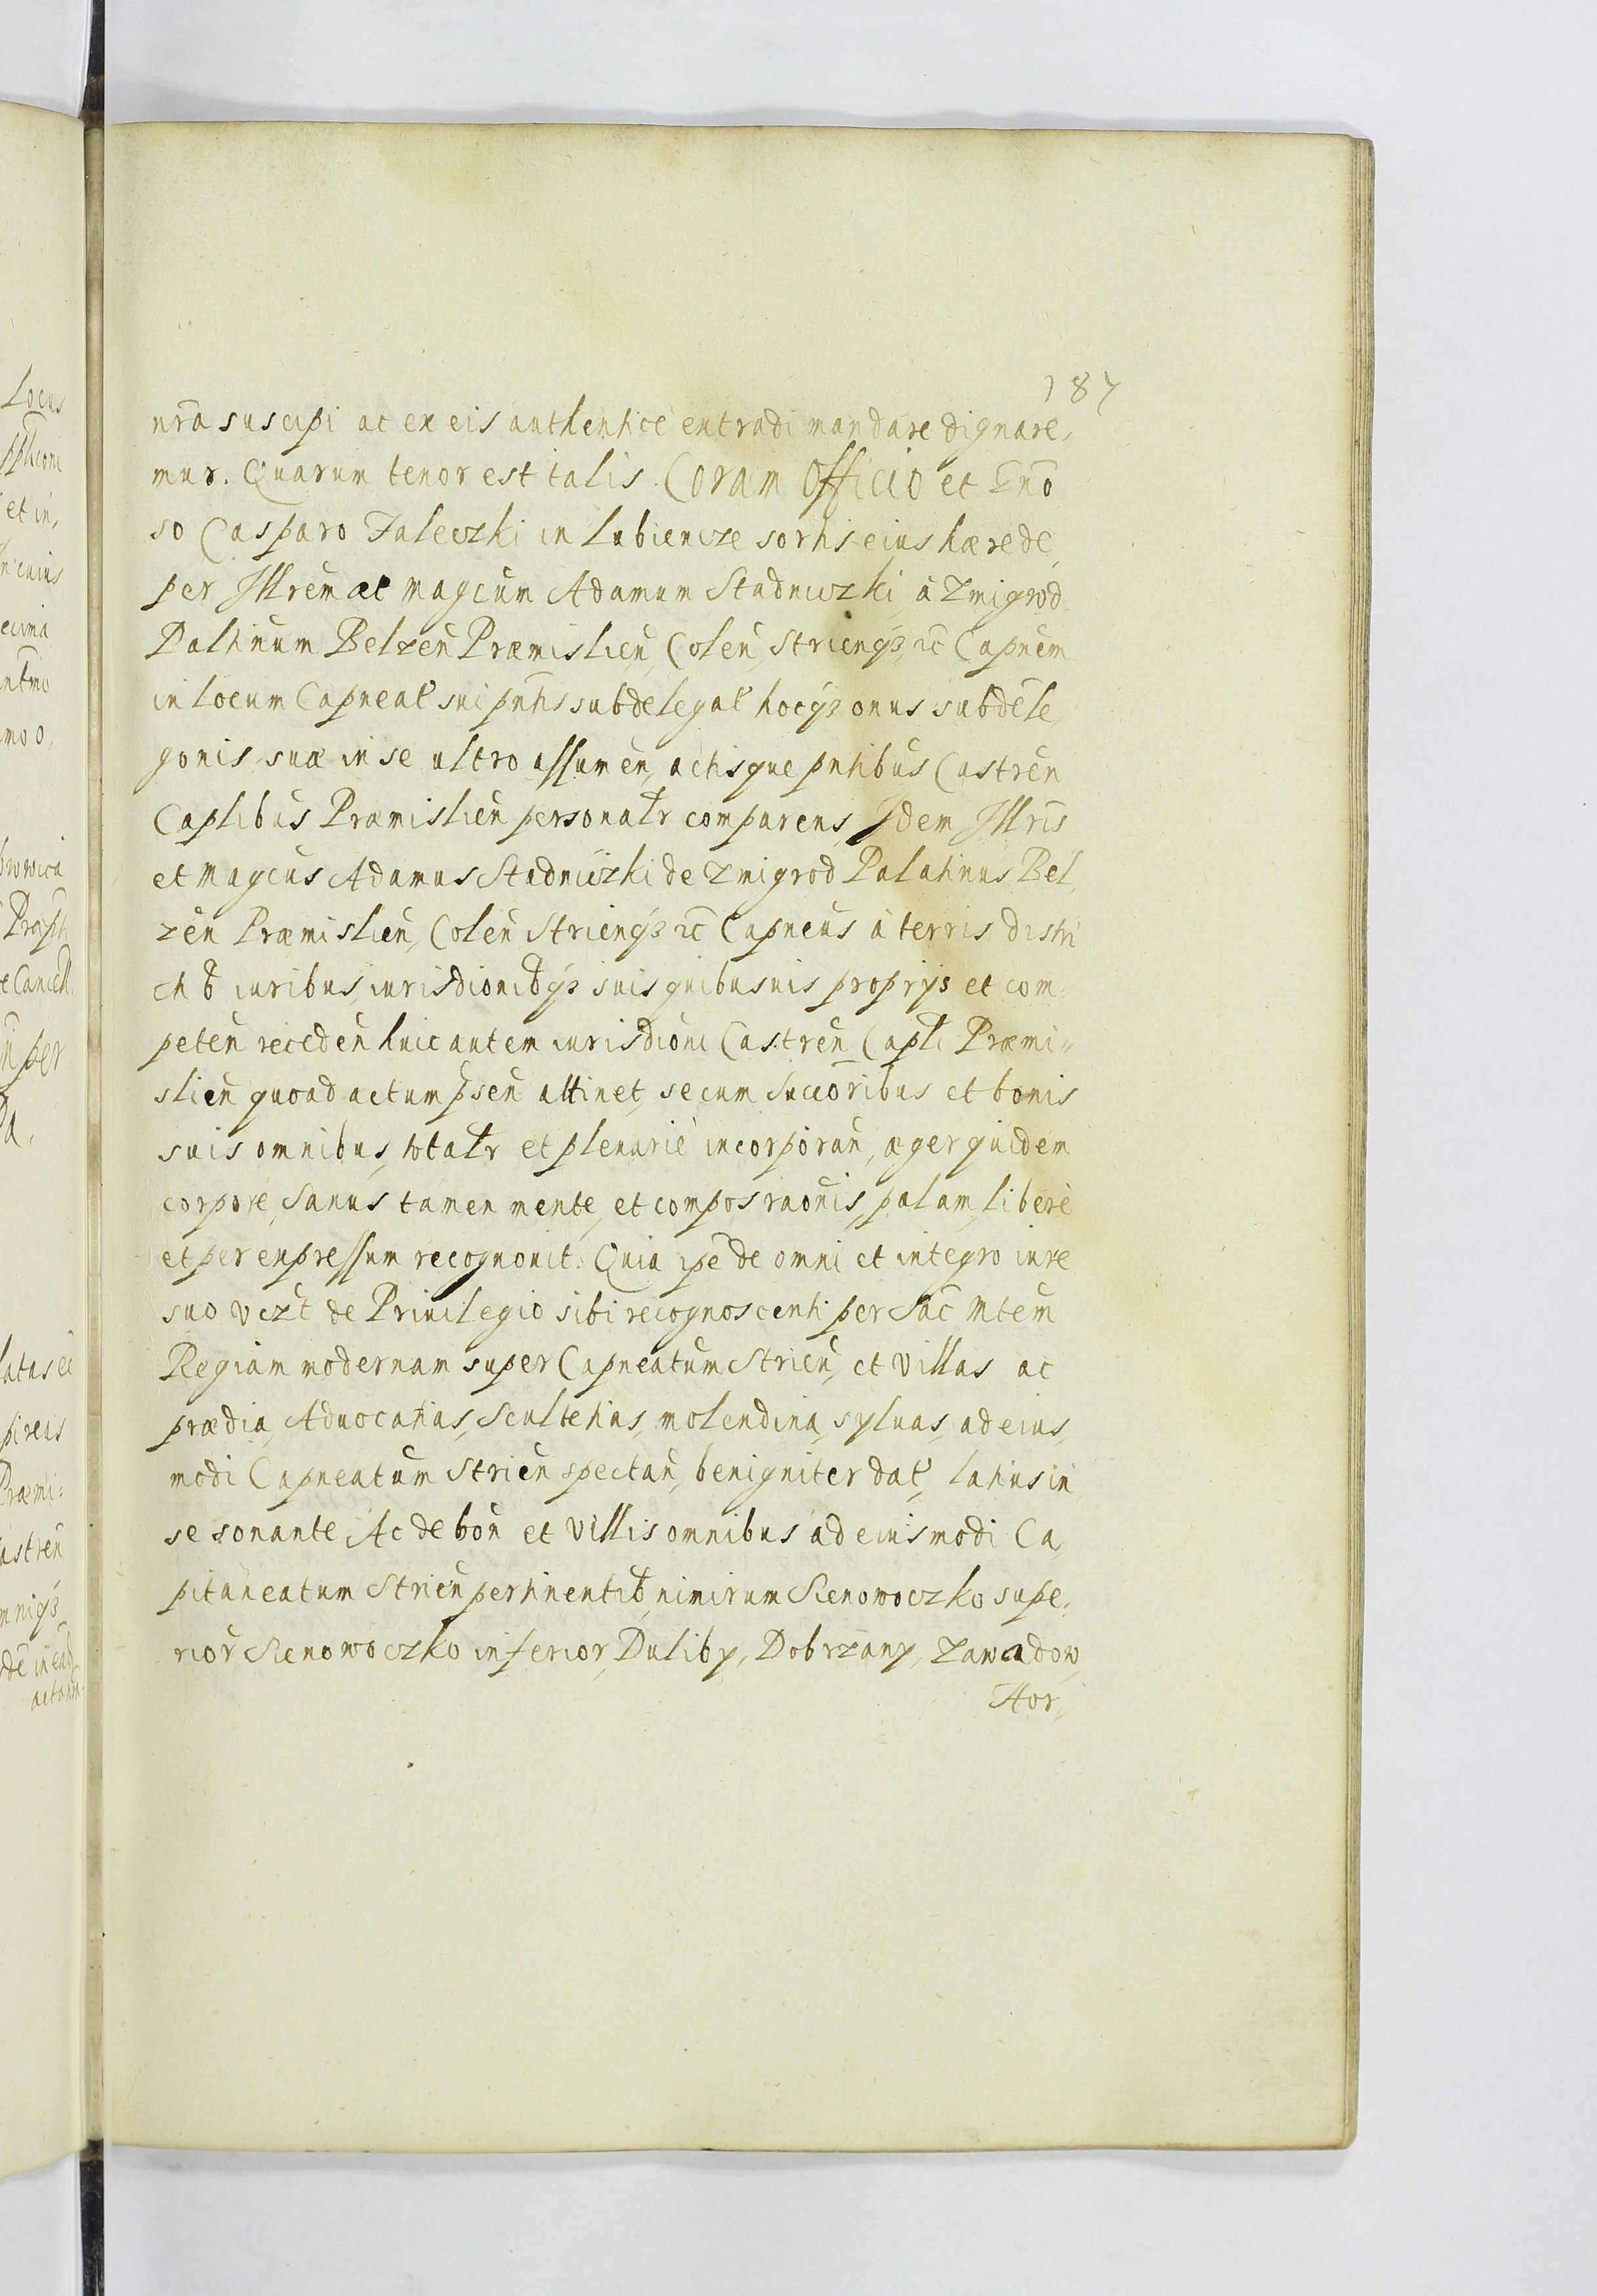 187
nr̃a suscipi ac ex eis authentice extradi mandare dignare,
mur. Quarum tenor est talis. Coram Officio et Gn̄o
so Casparo Faleczki in Lubiencze sortis eius hærede,
per Illrēm ac Magcūm Adamum Stadniczki à Zmigrod
Paltinum Belzeñ Præmislieñ, Coleñ, Striengꝫ ꝛc̃ Capnem̃
in locum Capneat̃ sui pñtis subdelegat̃ hocqꝫ onus subdele,
gonis suæ in se ultro assumeñ, actisque pñtibus Castreñ
Caplibus Præmislieñ personaℓr comparens, Idem Illris̃
et Magcus Adamus Stadniczki de Zmigrod Palatinus Bel,
zeñ Præmislieñ, Coleñ Striengꝫ ꝛc̃ Capneus à terris distri
ctib iuribus, iurisdionibqꝫ suis quibusuis proprys et com
peteñ recedeñ huic autem iurisdioni Castreñ Capli Præmi=
slieñ quoad actum pñseñ attinet, se cum Succoribus et bonis
suis omnibus, totaℓr et plenariè incorporañ, æger quidem
corpore, Sanus tamen mente, et compos raoñis, palam, liberè
et per expressum recognouit. Quia ip̃e de omni et integro iure
suo vczt̃ de Priuilegio sibi recognoscenti per Sac̃ Mtem̃
Regiam modernam super Capneatum Strieñ, et Villas ac
prædia, Aduocatias, Scultetias, molendina, syluas, ad eius,
modi Capneatum Strieñ spectañ, benigniter dat̃, latius in
se sonante, Ac de boñ et Villis omnibus ad eiusmodi Ca,
pitaneatum Strieñ pertinentib, nimirum Sienowoczko supe,
rior Sienowoczko inferior, Duliby, Dobrzany, Zawadow,
Hor,